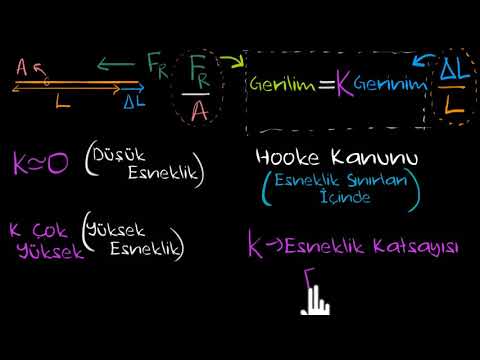 A
F_R
F_R/A
Gerilim = K Gerinim
ΔL/L
L
ΔL
K≈0 (Düşük Esneklik)
Hooke Kanunu
(Esneklik Sınırları İçinde)
K Çok Yüksek (Yüksek Esneklik)
K → Esneklik Katsayısı